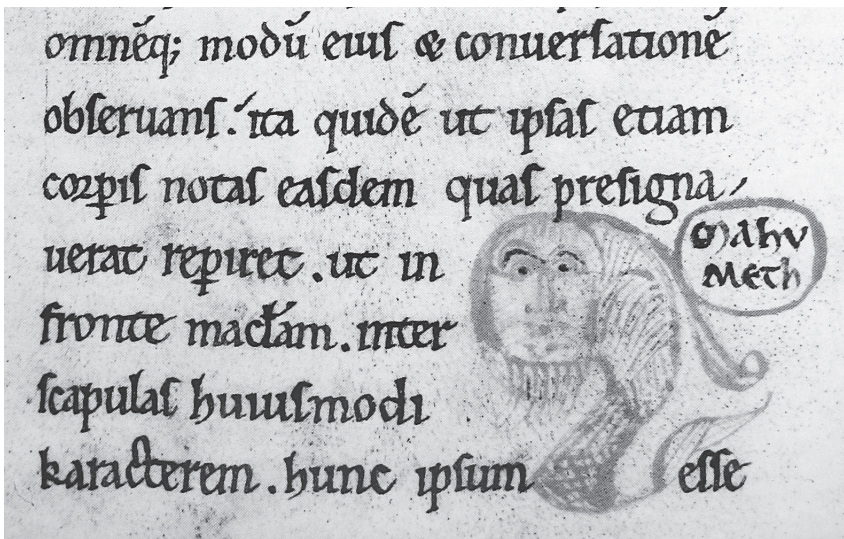 omnēq; modū eiuſ & conuerſationē
obſeruanſ. ita quidē ut ipſaſ etiam
corꝑiſ notaſ eaſdem quaſ preſigna
uerat reꝑiret. ut in
fronte macl̃am. inter
ſcapulaſ huiuſmodi
karacterem. hunc ipſum eſſe
Mahu
Meth